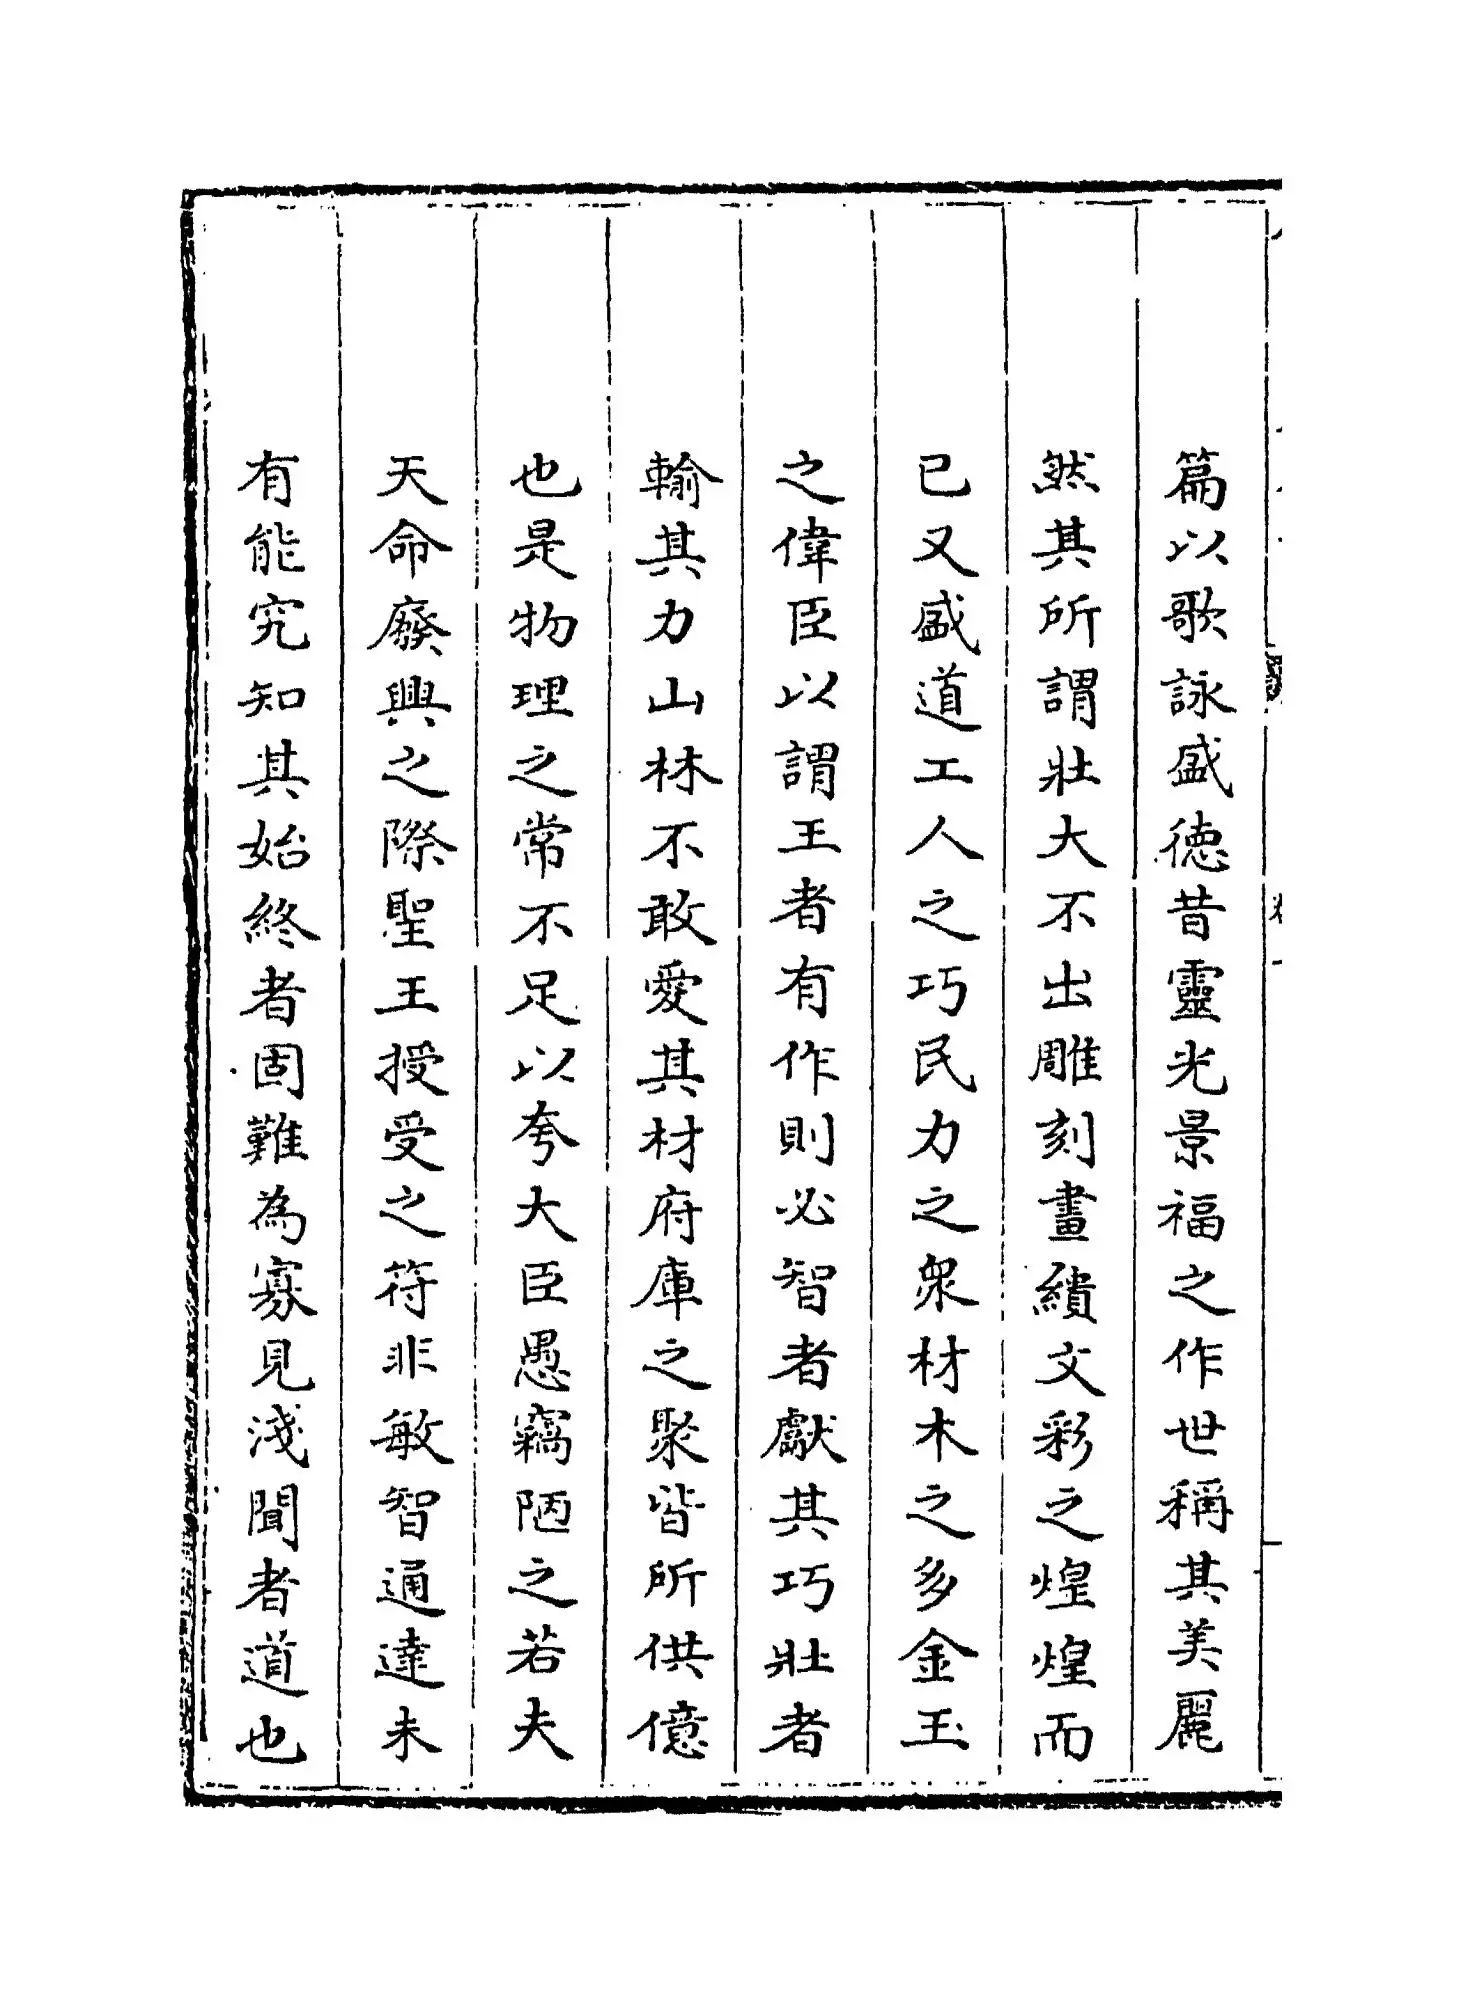 篇以歌詠盛德昔靈光景福之作世稱其美麗
然其所謂壯大不出雕刻畫繢文彩之煌煌而
已又盛道工人之巧民力之衆材木之多金玉
之偉臣以謂王者有作則必智者獻其巧壯者
輸其力山林不敢愛其材府庫之聚皆所供億
也是物理之常不足以夸大臣愚竊陋之若夫
天命廢興之際聖王授受之符非敏智通達未
有能究知其始終者固難為寡見淺聞者道也